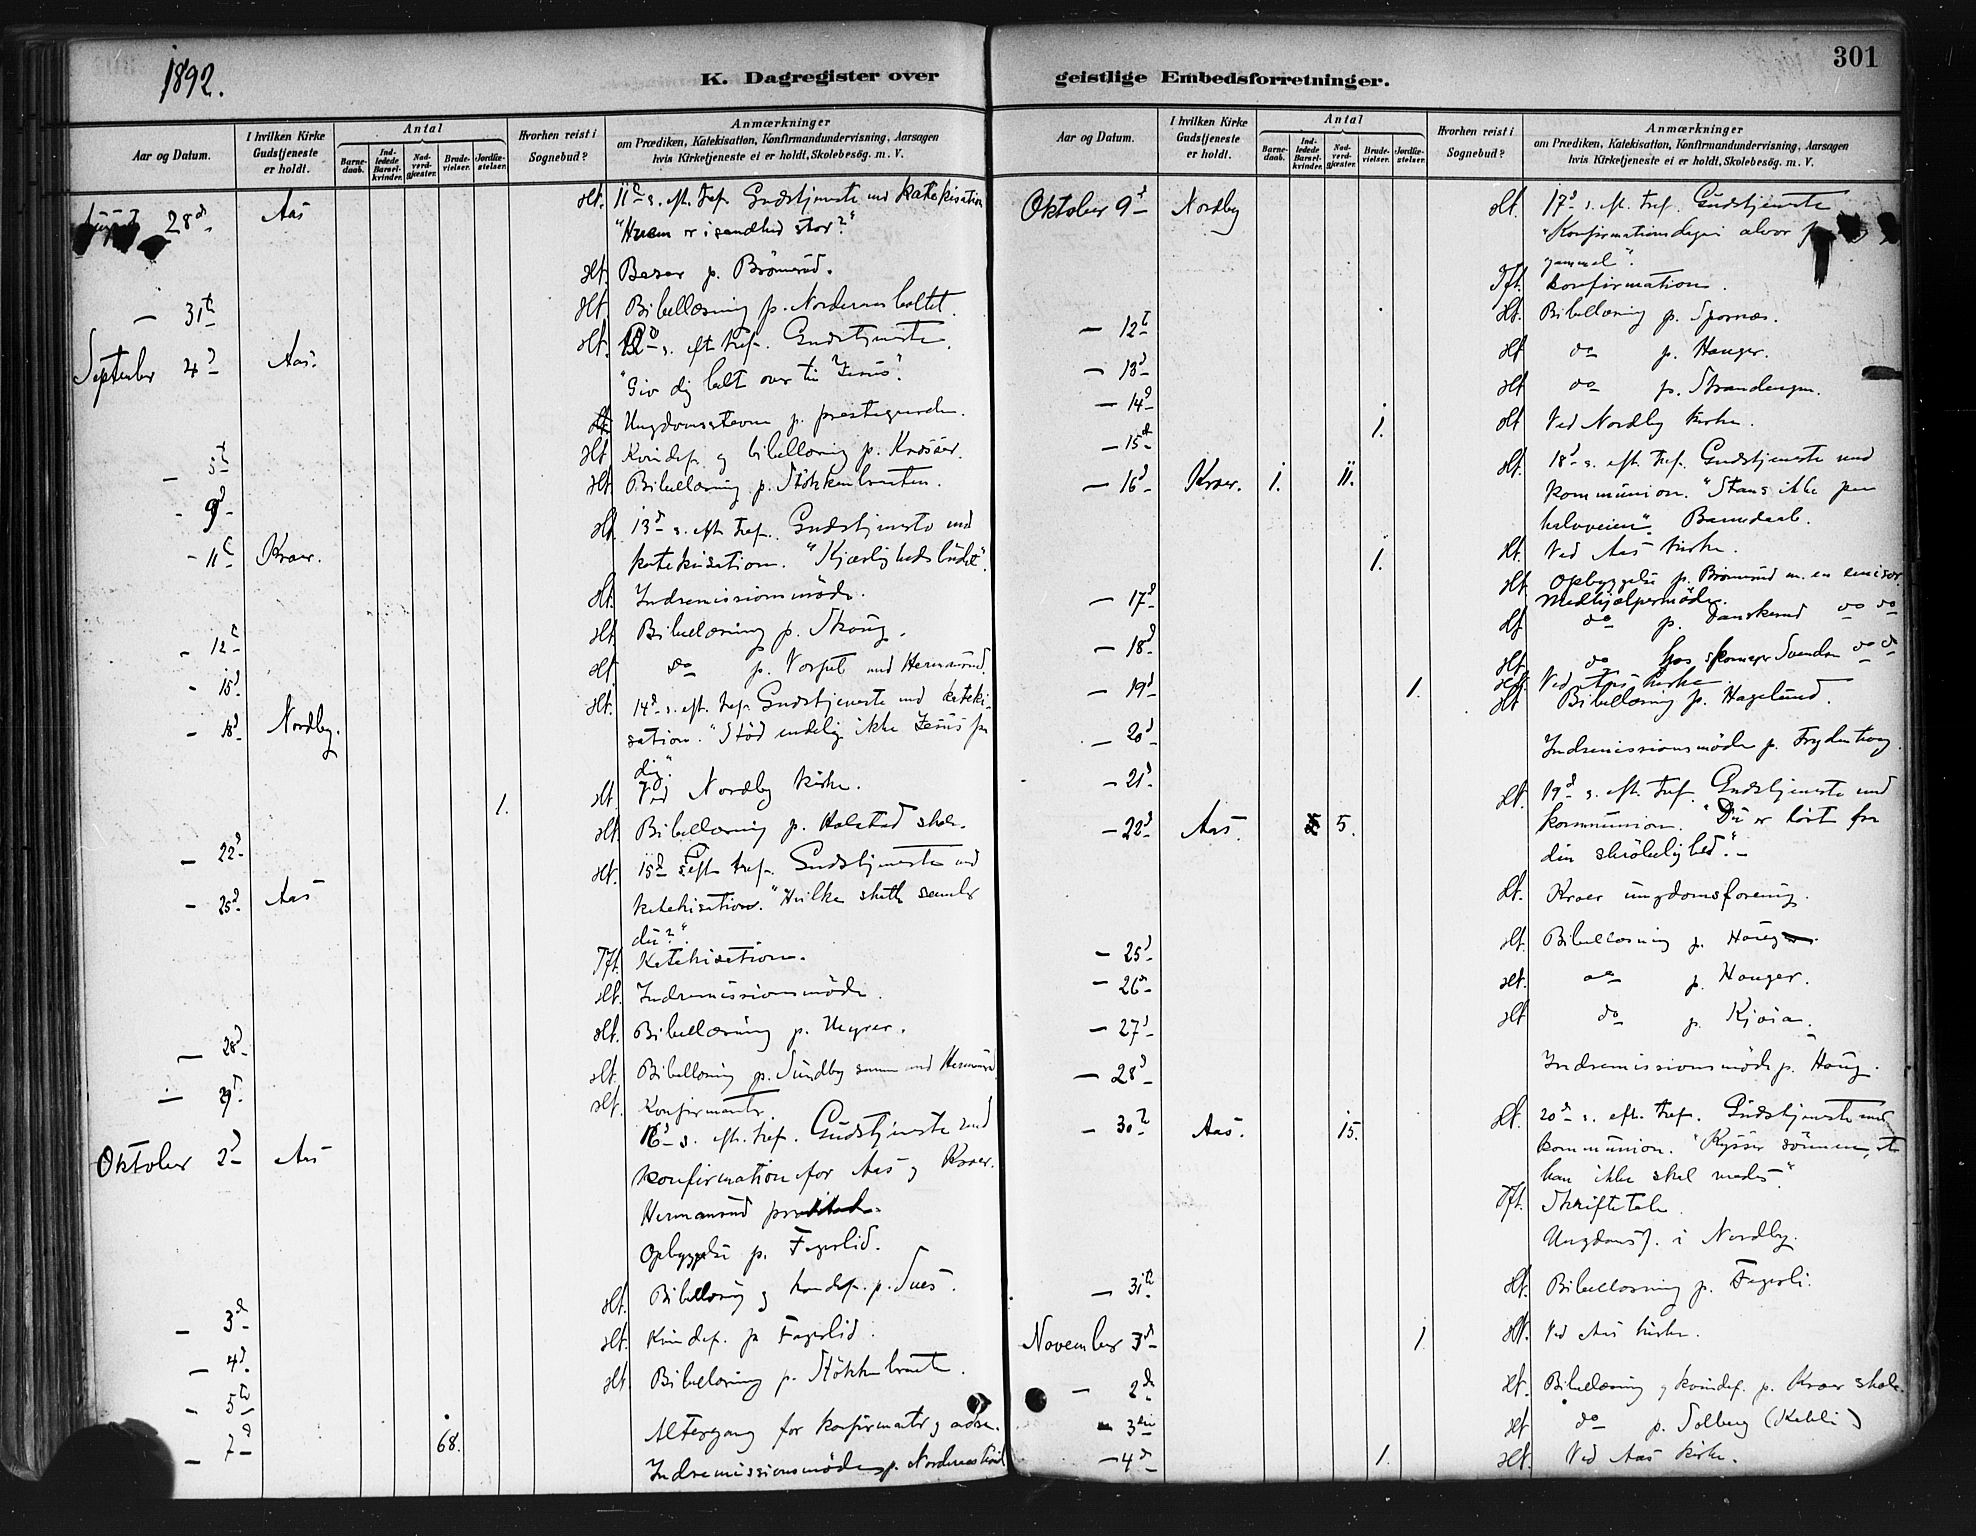 1892.
K. Dagregister over
Aar og Datum.
I hvilken Kirke Gudstjeneste er holdt.
Antal
Barnedaab.
Indledede Barselkvinder.
Nadverdgjæster.
Brudevielser.
Jordfæstelser.
Hvorhen reist i Sognebud?
Anmærkninger
om Prædiken, Katekisation, Konfirmandundervisning, Aarsagen
hvis Kirketjeneste ei er holdt, Skolebesøg. m. V.
August 28d Aas Hf. 11te s. eft. tref. Gudstjeneste med katekisation
"Hvem er i sandhed stor?"
Hf. Basar p.
— 31te Hf. Bibellæsning p.
September 4d Aas. Hf. 12d s. eft tref. Gudstjeneste.
"Giv dig helt over til Jesus".
Hf. Ungdomsstevne p. prestegarden.
— 5t Hf. Kvindef. og bibellæsning p.
- 9d Hf. Bibellæsning p. Støkkenbraaten.
- 11t Kroer. Hf. 13d s. eft. tref. Gudstjeneste med
katekisation. "Kjærlighedsbudet".
Hf. Indremissionsmøde.
- 12t Hf. Bibellæsning p. Skoug.
- 15d Hf. do p. med Hermanrud.
- 18d Nordby. Hf. 14d s. eft. tref. Gudstjeneste med kateki-
sation. "Stød endelig ikke Jesus fra
dig."
1. Hf. Ved Nordby kirke.
— 22d Hf. Bibellæsning p. Holstad skole.
- 25d Aas Hf. 15d s. eft. tref. Gudstjeneste med
katekisation. "Hvilke skatte samler
du?".
Tft. Katekisation.
Hf. Indremissionsmøde.
— 28d Hf. Bibellæsning p.
— 29d Hf. Bibellæsning p. Sundby samm. med Hermanrud
Hf. Konfirmanter.
Oktober 2d Aas 16d s. eft. tref. Gudstjeneste med
konfirmation for Aas og Kroer.
Hermanrud
Opbyggelse p. Fagerlid.
— 3d Hf. Bibellæsning og kvindef. p.
— 4d Hf. Kvindef. p. Fagerlid.
- 5te Hf. Bibellæsning p. Støkkenbraaten.
— 7d 68. Altergang for konfirmanter og andre.
Indremissionsmøde p.
geistlige Embedsforretninger.
301
Aar og Datum.
I hvilken Kirke Gudstjeneste er holdt.
Antal
Barnedaab.
Indledede Barselkvinder.
Nadverdgjæster.
Brudevielser.
Jordfæstelser.
Hvorhen reist i Sognebud?
Anmærkninger
om Prædiken, Katekisation, Konfirmandundervisning, Aarsagen
hvis Kirketjeneste ei er holdt, Skolebesøg. m. V.
Oktober 9d Nordby Hf. 17d s. eft. tref. Gudstjeneste
"Konfirmationsdagens alvor
gammel".
Tft. konfirmation.
— 12t Hf. Bibellæsning p. Spornæs.
— 13d Hf do p. Hauger.
— 14d Hf do p. Strandengen.
— 15de 1. Hf Ved Nordby kirke.
— 16d Kroer. 1. 11. Hf. 18d s. eft. tref. Gudstjeneste med
kommunion. "Stans ikke paa
halvveien". Barnedaab.
1. Hf. Ved Aas kirke.
— 17d Hf. Opbyggelse p. m. en emissær
Medhjælpermøde.
— 18d Hf do p. Danskerud do do
— 19d Hf do hos skomager Svendsen do do
1. Hf. Ved Aas kirke
Hf Bibellæsning p. Hagelund.
— 20d
— 21d Indremissionsmøde p. Frydenhoug.
— 22d Aas. 5. Hf. 19d s. eft. tref. Gudstjeneste med
kommunion. "Du er løst fra
din skrøbelighed."
Hf. Kroer ungdomsforening.
— 25d Hf. Bibellæsning p. Houg.
— 26d Hf. do p. Hauger.
— 27d Hf do p. Kjøia.
— 28d Indremissionsmøde p. Houg.
— 30te Aas. 15. Hf. 20d s. eft. tref. Gudstjeneste med
kommunion. "Kysser sønnen, at
han ikke skal vredes".
Tft. Skriftetale.
Ungdomsf. i Nordby.
— 31te Hf. Bibellæsning p. Fagerli.
November 3d 1 Hf. Ved Aas kirke.
— 2de Hf. Bibellæsning og kvindef. p. Kroer skole.
— 3die Hf do p. Solberg
— 4d 1. Hf. Ved Aas kirke.